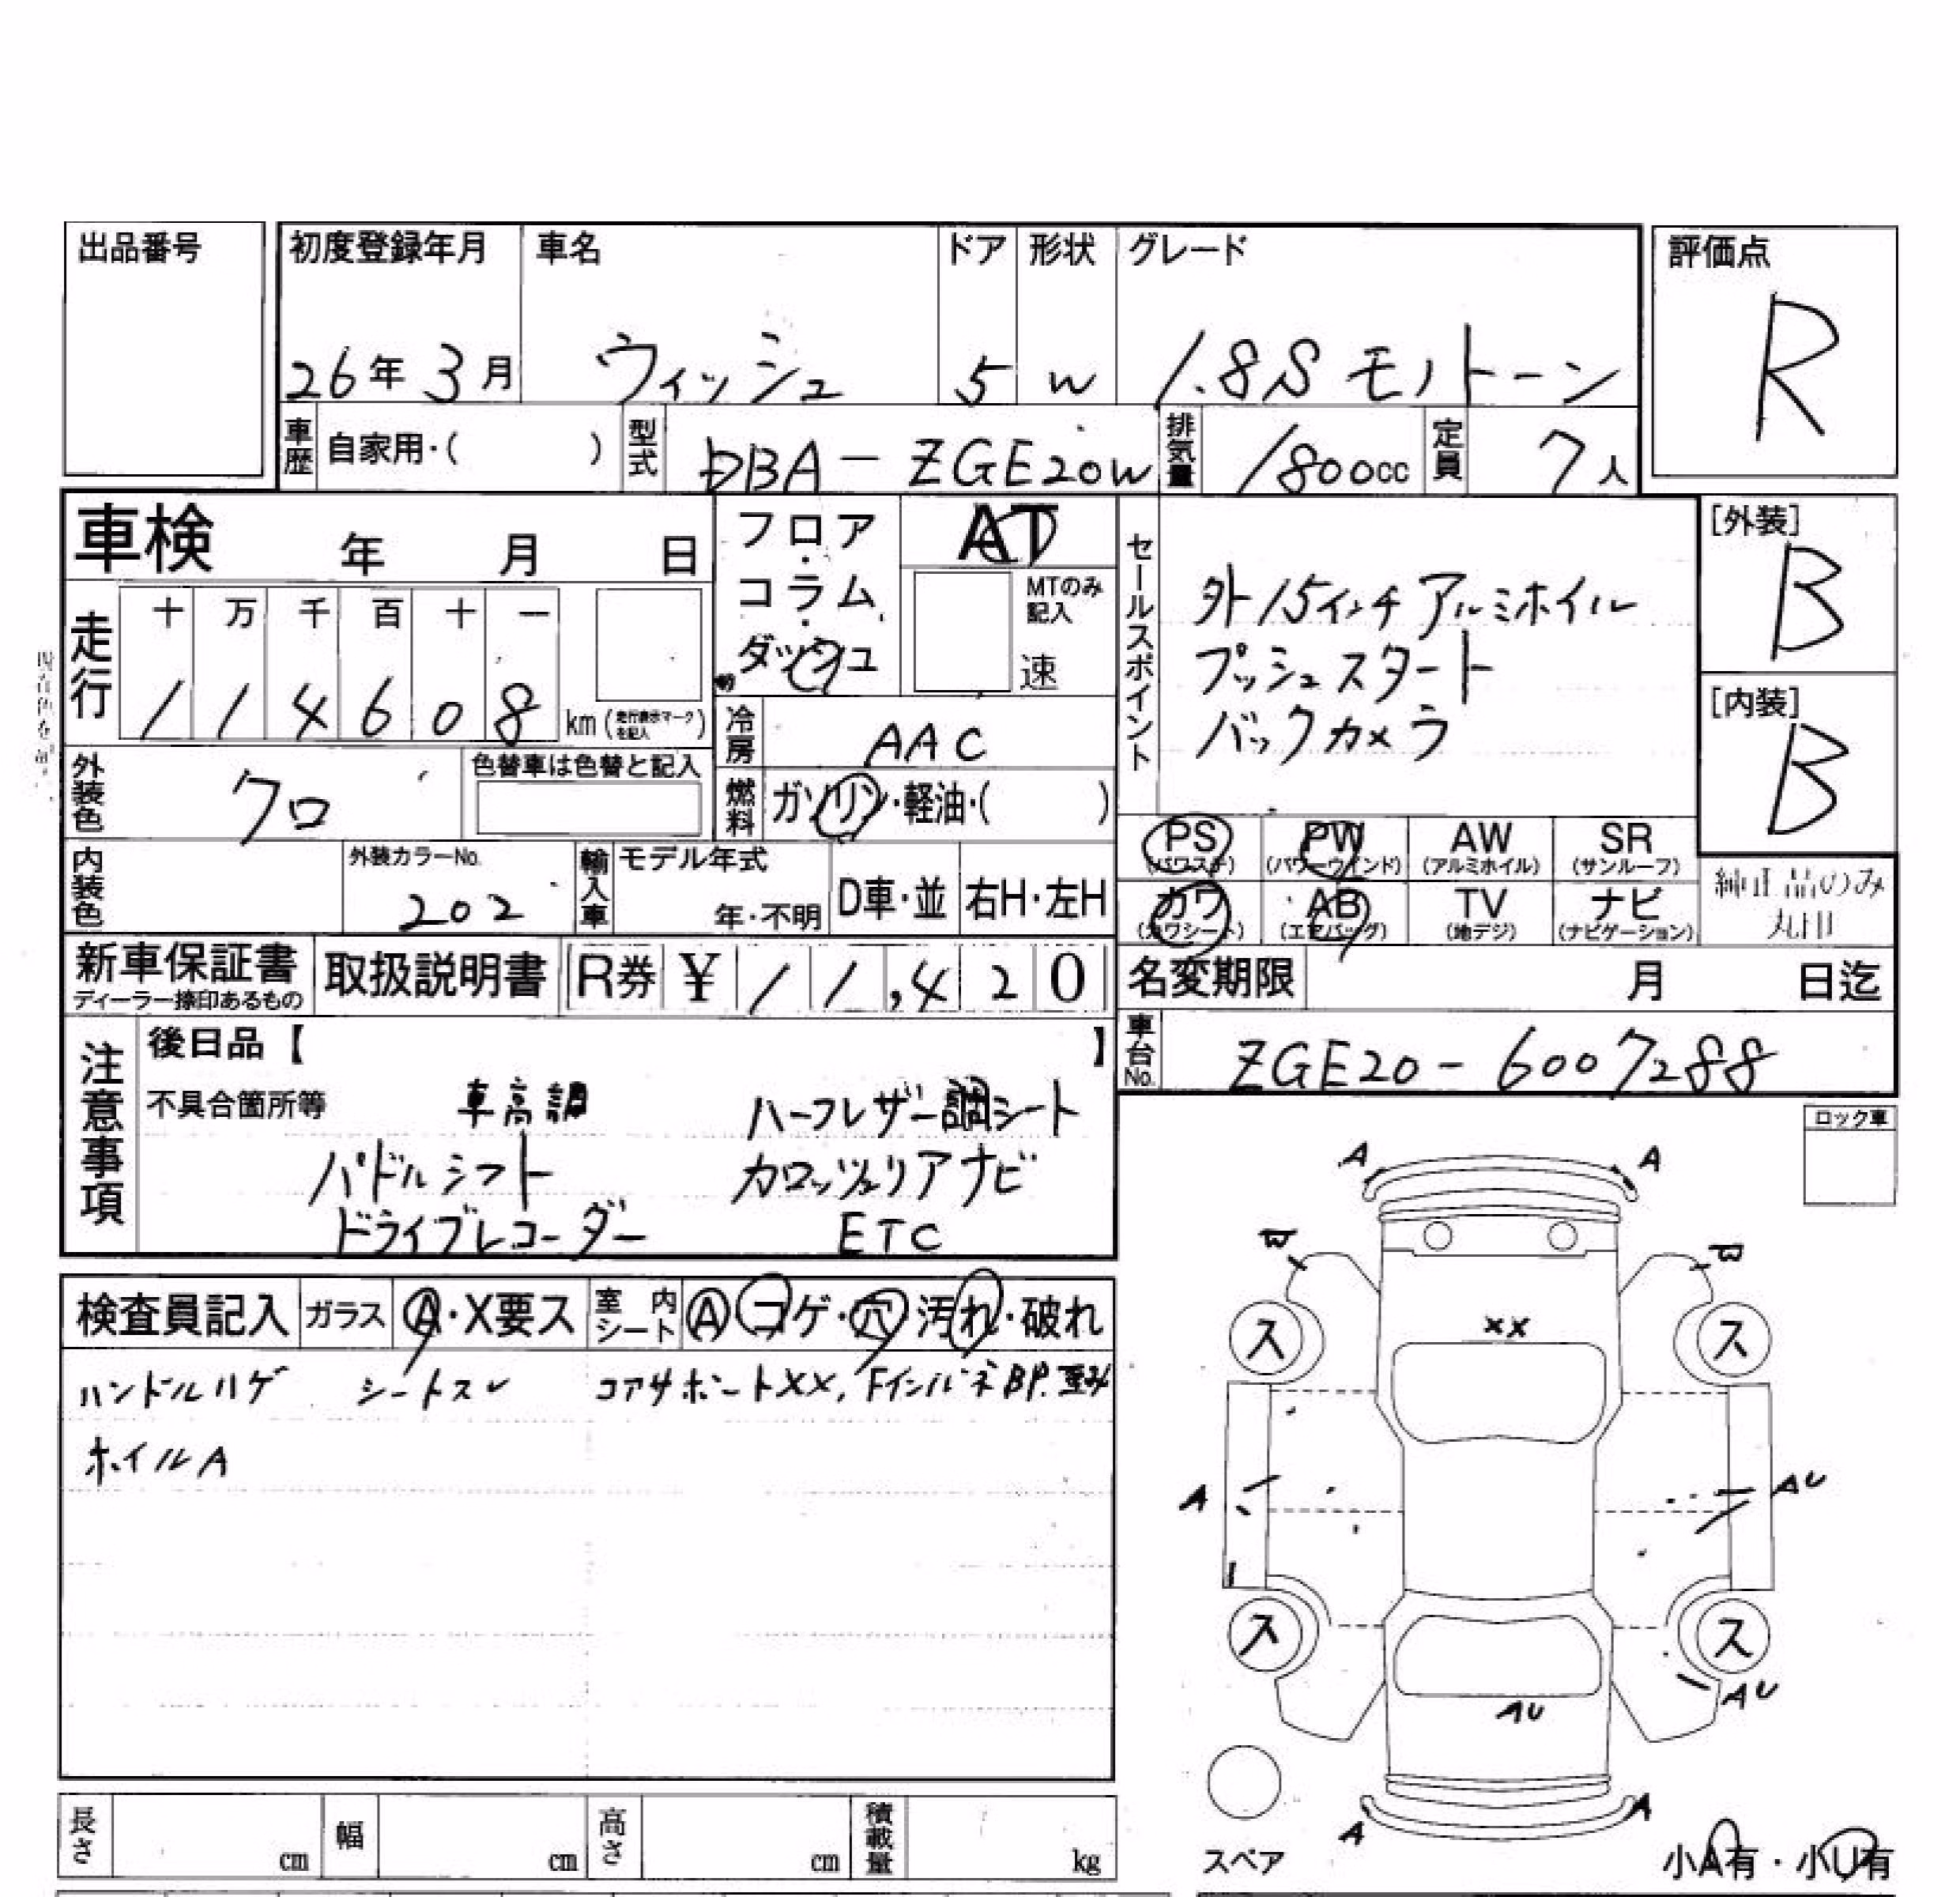 出品番号
初度登録年月 車名 ドア 形状 グレード 評価点
26年3月 ウィッシュ 5 W 1.8S モノトーン R
車歴 自家用・( ) 型式 DBA-ZGE20W 排気量 1800cc 定員 7人
車検 年 月 日 フロア・コラム・ダッシュ AT
MTのみ記入 速
セールスポイント
外15インチアルミホイル
プッシュスタート
バックカメラ
[外装] B
[内装] B
走行 十 万 千 百 十 一
1 1 4 6 0 8 km (走行表示マークを記入)
冷房 AAC
外装色 クロ 色替車は色替と記入
燃料 ガソリン・軽油・( )
PS (パワステ) PW (パワーウインド) AW (アルミホイル) SR (サンルーフ)
カワ (カワシート) AB (エアバッグ) TV (地デジ) ナビ (ナビゲーション)
純正品のみ
丸印
内装色 外装カラーNo. 202 輸入車 モデル年式 年・不明 D車・並 右H・左H
新車保証書 ディーラー捺印あるもの 取扱説明書 R券 ¥ 11,420
名変期限 月 日迄
車台No. ZGE20-6007288
注意事項 後日品【 】
不具合箇所等 車高調 ハーフレザー調シート
パドルシフト カロッツェリアナビ
ドライブレコーダー ETC
ロック車
検査員記入 ガラス A・X要ス 室内シート A コゲ・穴 汚れ・破れ
ハンドルハゲ シートスレ コアサポートXX, Fインパネ BP.歪み
ホイルA
A A
W W
XX
ス ス
A AU
ス ス
AU
AU
A A
スペア
小A有・小U有
長さ cm 幅 cm 高さ cm 積載量 kg